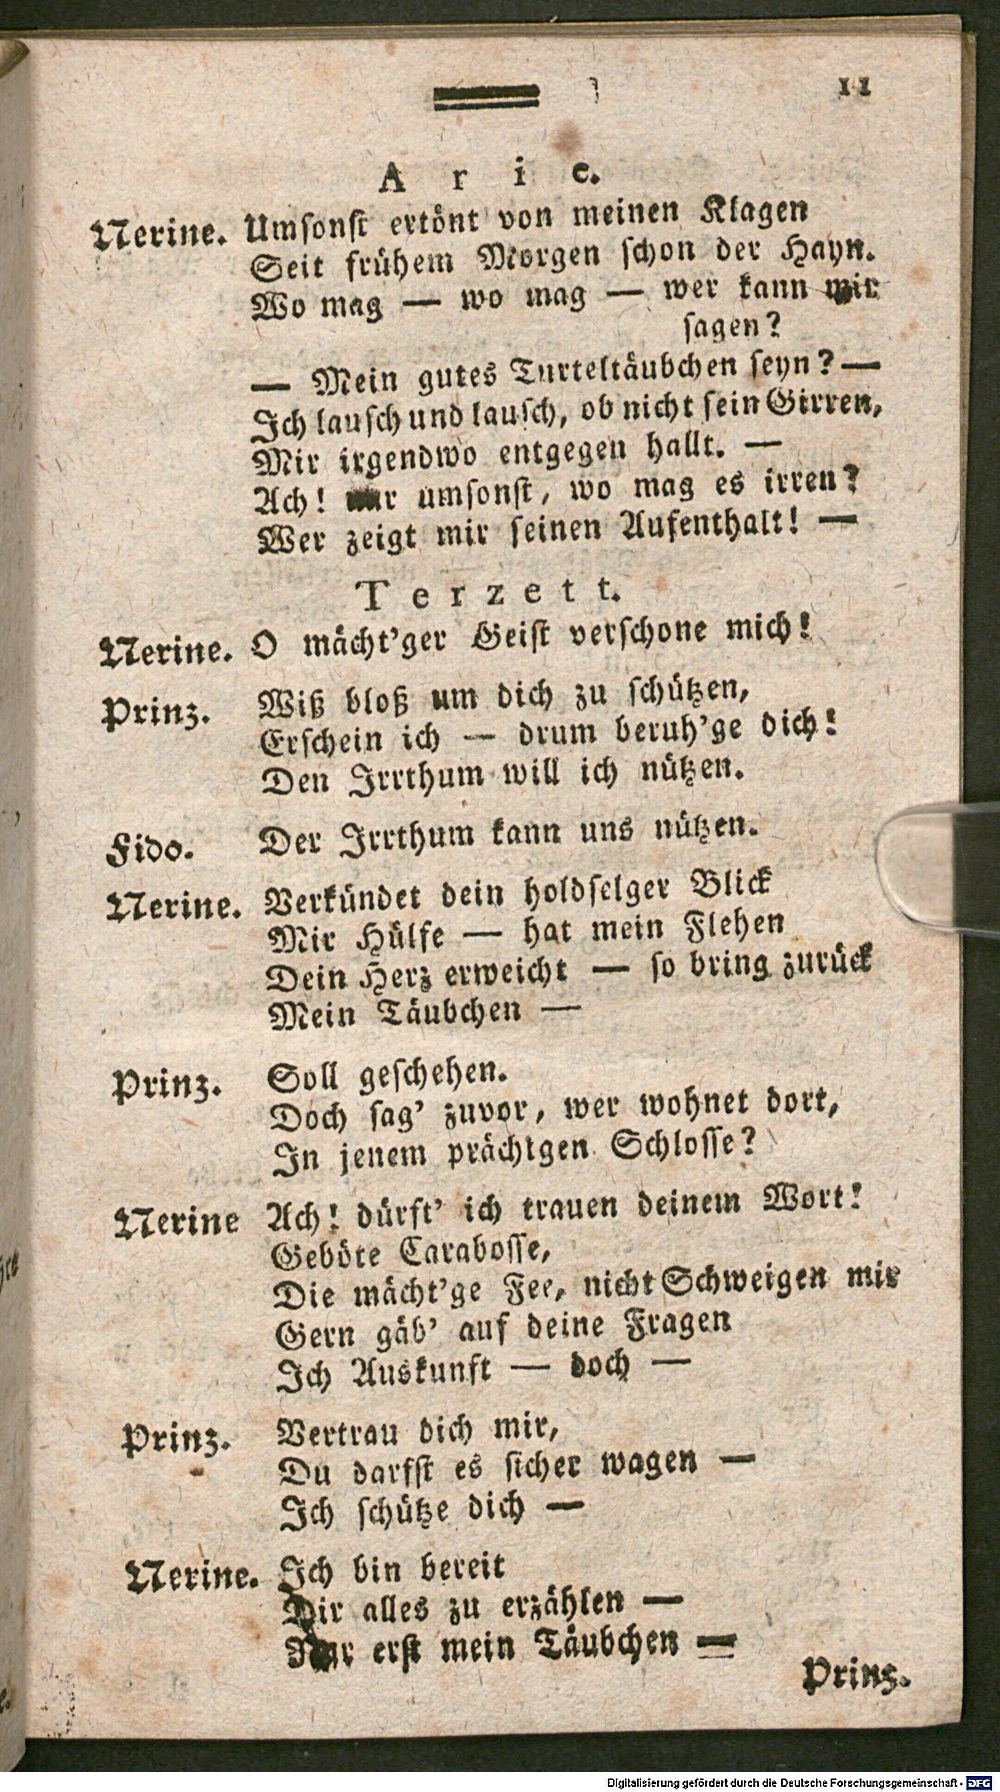 11
Arie.
Nerine. Umsonst ertönt von meinen Klagen
Seit frühem Morgen schon der Hayn.
Wo mag — wo mag — wer kann mir
sagen?
— Mein gutes Turteltäubchen seyn? —
Ich lausch und lausch, ob nicht sein Girren,
Mir irgendwo entgegen hallt. —
Ach! nur umsonst, wo mag es irren?
Wer zeigt mir seinen Aufenthalt! —
Terzett.
Nerine. O mächt'ger Geist verschone mich!
Prinz. Wiß bloß um dich zu schützen,
Erschein ich — drum beruh'ge dich!
Den Irrthum will ich nützen.
Fido. Der Irrthum kann uns nützen.
Nerine. Verkündet dein holdselger Blick
Mir Hülfe — hat mein Flehen
Dein Herz erweicht — so bring zurück
Mein Täubchen —
Prinz. Soll geschehen.
Doch sag' zuvor, wer wohnet dort,
In jenem prächtgen Schlosse?
Nerine Ach! dürft' ich trauen deinem Wort!
Geböte Carabosse,
Die mächt'ge Fee, nicht Schweigen mir
Gern gäb' auf deine Fragen
Ich Auskunft — doch —
Prinz. Vertrau dich mir,
Du darfst es sicher wagen —
Ich schütze dich —
Nerine. Ich bin bereit
Dir alles zu erzählen —
Nur erst mein Täubchen —
Prinz.
Digitalisierung gefördert durch die Deutsche Forschungsgemeinschaft - DFG